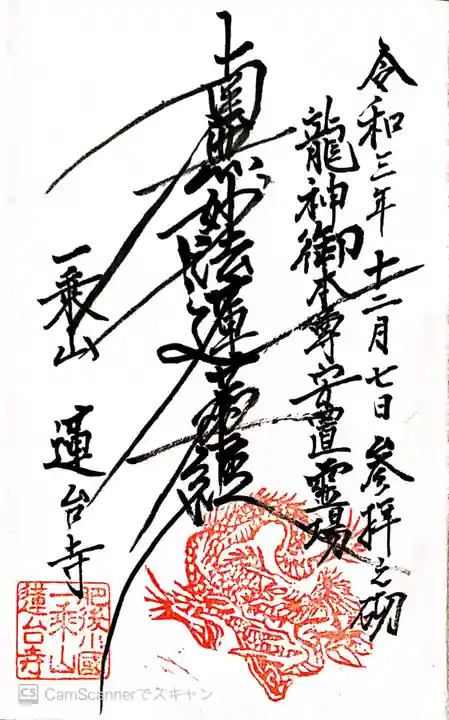 令和三年十二月七日参拝之砌
龍神御本尊安置霊場
南無妙法蓮華経
一乗山 蓮台寺
肥後川國
一乗山
蓮台寺
CS CamScannerでスキャン